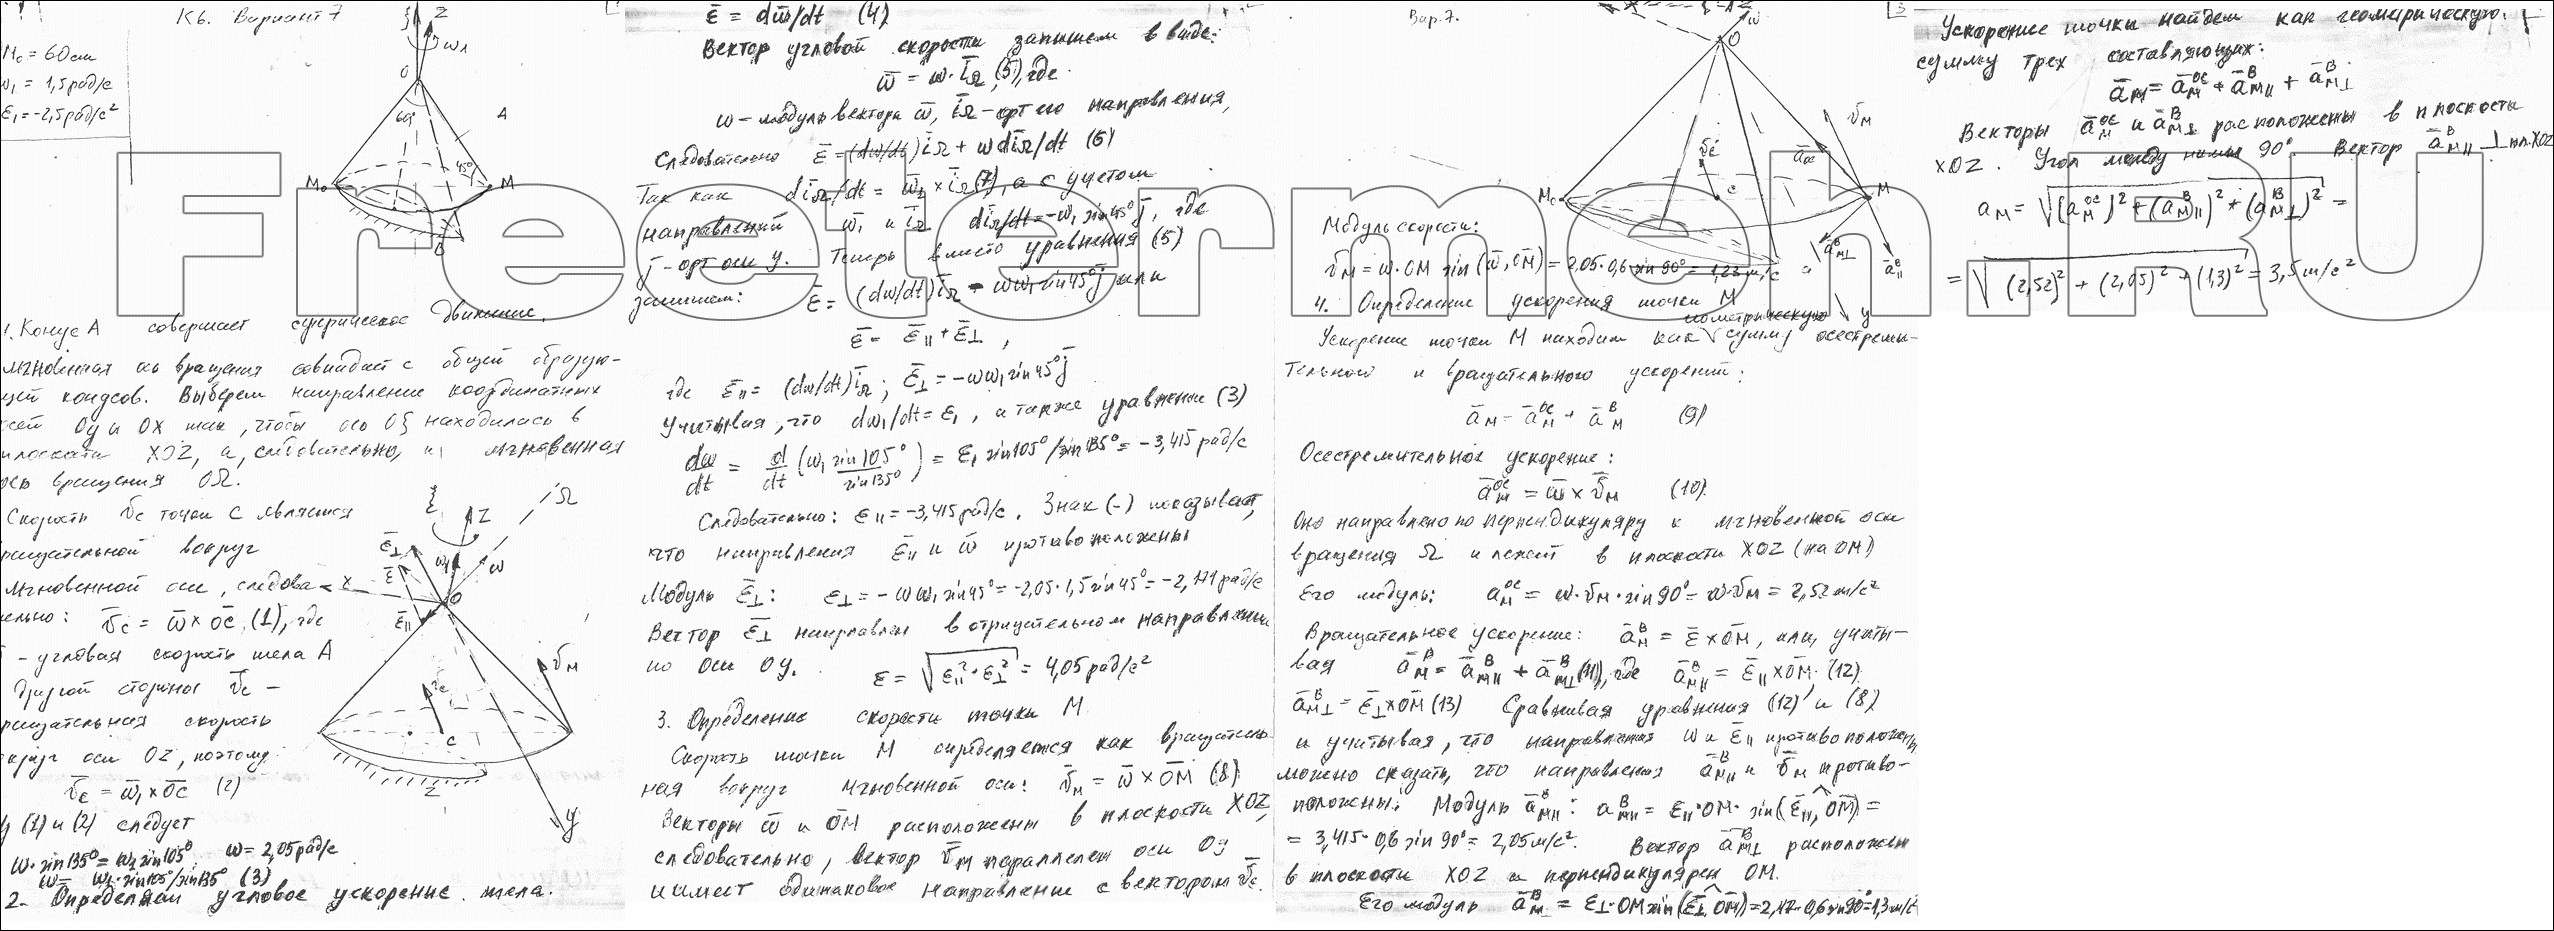 К6. Вариант 7
M₀ = 60 см
ω₁ = 1,5 рад/с
ε₁ = -2,5 рад/с²
Z
ω₁
O
60°
A
45°
M₀
M
B
1. Конус А совершает сферическое движение,
мгновенная ось вращения совпадает с общей образую-
щей конусов. Выберем направление координатных
осей Oy и OX так, чтобы ось Oξ находилась в
плоскости XOZ, а, следовательно, и мгновенная
ось вращения OΩ.
Скорость v̄c точки C является
вращательной вокруг
мгновенной оси, следова-
тельно: v̄c = ω̄ × ōc, (1), где
- угловая скорость тела А
другой стороны v̄c -
вращательная скорость
вокруг оси OZ, поэтому
v̄c = ω̄₁ × ōc (2)
(1) и (2) следует
ω·sin135° = ω₁ sin105° ω = 2,05 рад/с
ω = ω₁·sin105°/sin135° (3)
2. Определяем угловое ускорение тела.
ξ
Z
Ω
ε̄⊥
ε̄
ω₁
ω
x
O
ε̄||
v̄M
v̄c
C
y
ε̄ = dω̄/dt (4)
Вектор угловой скорости запишем в виде:
ω̄ = ω·īΩ, (5), где
ω - модуль вектора ω̄, īΩ - орт его направления,
Следовательно ε̄ = (dω/dt)īΩ + ω dīΩ/dt (6)
Так как dīΩ/dt = ω̄₁ × īΩ (7), а с учетом
направлений ω̄₁ и īΩ dīΩ/dt = -ω₁ sin45° j̄, где
j̄ - орт оси y. Теперь вместо уравнения (5)
запишем: ε̄ = (dω/dt)īΩ - ωω₁ sin45° j̄ или
ε̄ = ε̄|| + ε̄⊥,
где ε̄|| = (dω/dt)īΩ; ε̄⊥ = -ωω₁ sin45° j̄
Учитывая, что dω₁/dt = ε₁, а также уравнение (3)
dω/dt = d/dt (ω₁ sin105°/sin135°) = ε₁ sin105°/sin135° = -3,415 рад/с
Следовательно: ε|| = -3,415 рад/с. Знак (-) показывает,
что направления ε̄|| и ω̄ противоположны
Модуль ε̄⊥: ε⊥ = -ωω₁ sin45° = -2,05·1,5 sin45° = -2,174 рад/с
Вектор ε̄⊥ направлен в отрицательном направлении
по оси Oy. ε = √(ε||²+ε⊥²) = 4,05 рад/с²
3. Определение скорости точки M
Скорость точки M определяется как вращатель-
ная вокруг мгновенной оси: v̄M = ω̄ × OM̄ (8)
Векторы ω̄ и OM̄ расположены в плоскости XOZ,
следовательно, вектор v̄M параллелен оси Oy
и имеет одинаковое направление с вектором v̄c.
Вар. 7.
ω
O
v̄M
v̄c
āос
C
M₀
M
āᴮM⊥
āᴮ||
y
Модуль скорости:
vM = ω·OM sin(ω̄, OM̄) = 2,05·0,6 sin 90° = 1,23 м/с
4. Определение ускорения точки M
геометрическую
Ускорение точки M находим как √ сумму осестреми-
тельного и вращательного ускорений:
āM = āᵒᶜM + āᴮM (9)
Осестремительное ускорение:
āᵒᶜM = ω̄ × v̄M (10)
Оно направлено по перпендикуляру к мгновенной оси
вращения Ω и лежит в плоскости XOZ (на OM)
Его модуль: aᵒᶜM = ω·vM·sin90° = ω·vM = 2,52 м/с²
Вращательное ускорение: āᴮM = ε̄ × OM̄, или, учиты-
вая āᴮM = āᴮM|| + āᴮM⊥ (11), где āᴮM|| = ε̄|| × OM̄ (12)
āᴮM⊥ = ε̄⊥ × OM̄ (13) Сравнивая уравнения (12) и (8)
и учитывая, что направления ω и ε̄|| противоположны,
можно сказать, что направления āᴮM|| и v̄M противо-
положны. Модуль āᴮM||: aᴮM|| = ε||·OM·sin(ε̄||, OM̄) =
= 3,415·0,6 sin 90° = 2,05 м/с². Вектор āᴮM⊥ расположен
в плоскости XOZ и перпендикулярен OM.
Его модуль āᴮM⊥ = ε⊥·OM sin(ε̄⊥, OM̄) = 2,17·0,6 sin90° = 1,3 м/с
3
Ускорение точки найдем как геометрическую
сумму трех составляющих:
āM = āᵒᶜM + āᴮM|| + āᴮM⊥
Векторы āᵒᶜM и āᴮM⊥ расположены в плоскости
XOZ. Угол между ними 90°. Вектор āᴮM|| ⊥ пл. XOZ
aM = √((aᵒᶜM)² + (aᴮM||)² + (aᴮM⊥)²) =
= √((2,52)² + (2,05)² + (1,3)²) = 3,5 м/с²
Freetermeh.RU